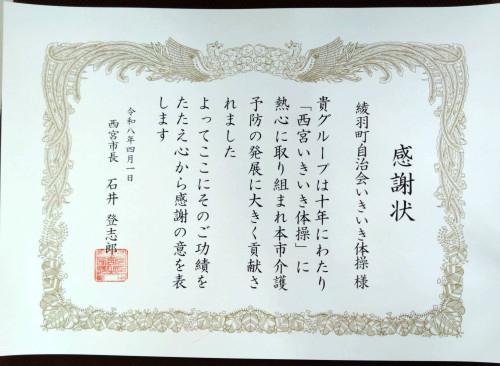 感謝状
綾羽町自治会いきいき体操様
貴グループは十年にわたり
「西宮いきいき体操」に
熱心に取り組まれ本市介護
予防の発展に大きく貢献さ
れました
よってここにそのご功績を
たたえ心から感謝の意を表
します
令和八年四月一日
西宮市長 石井登志郎